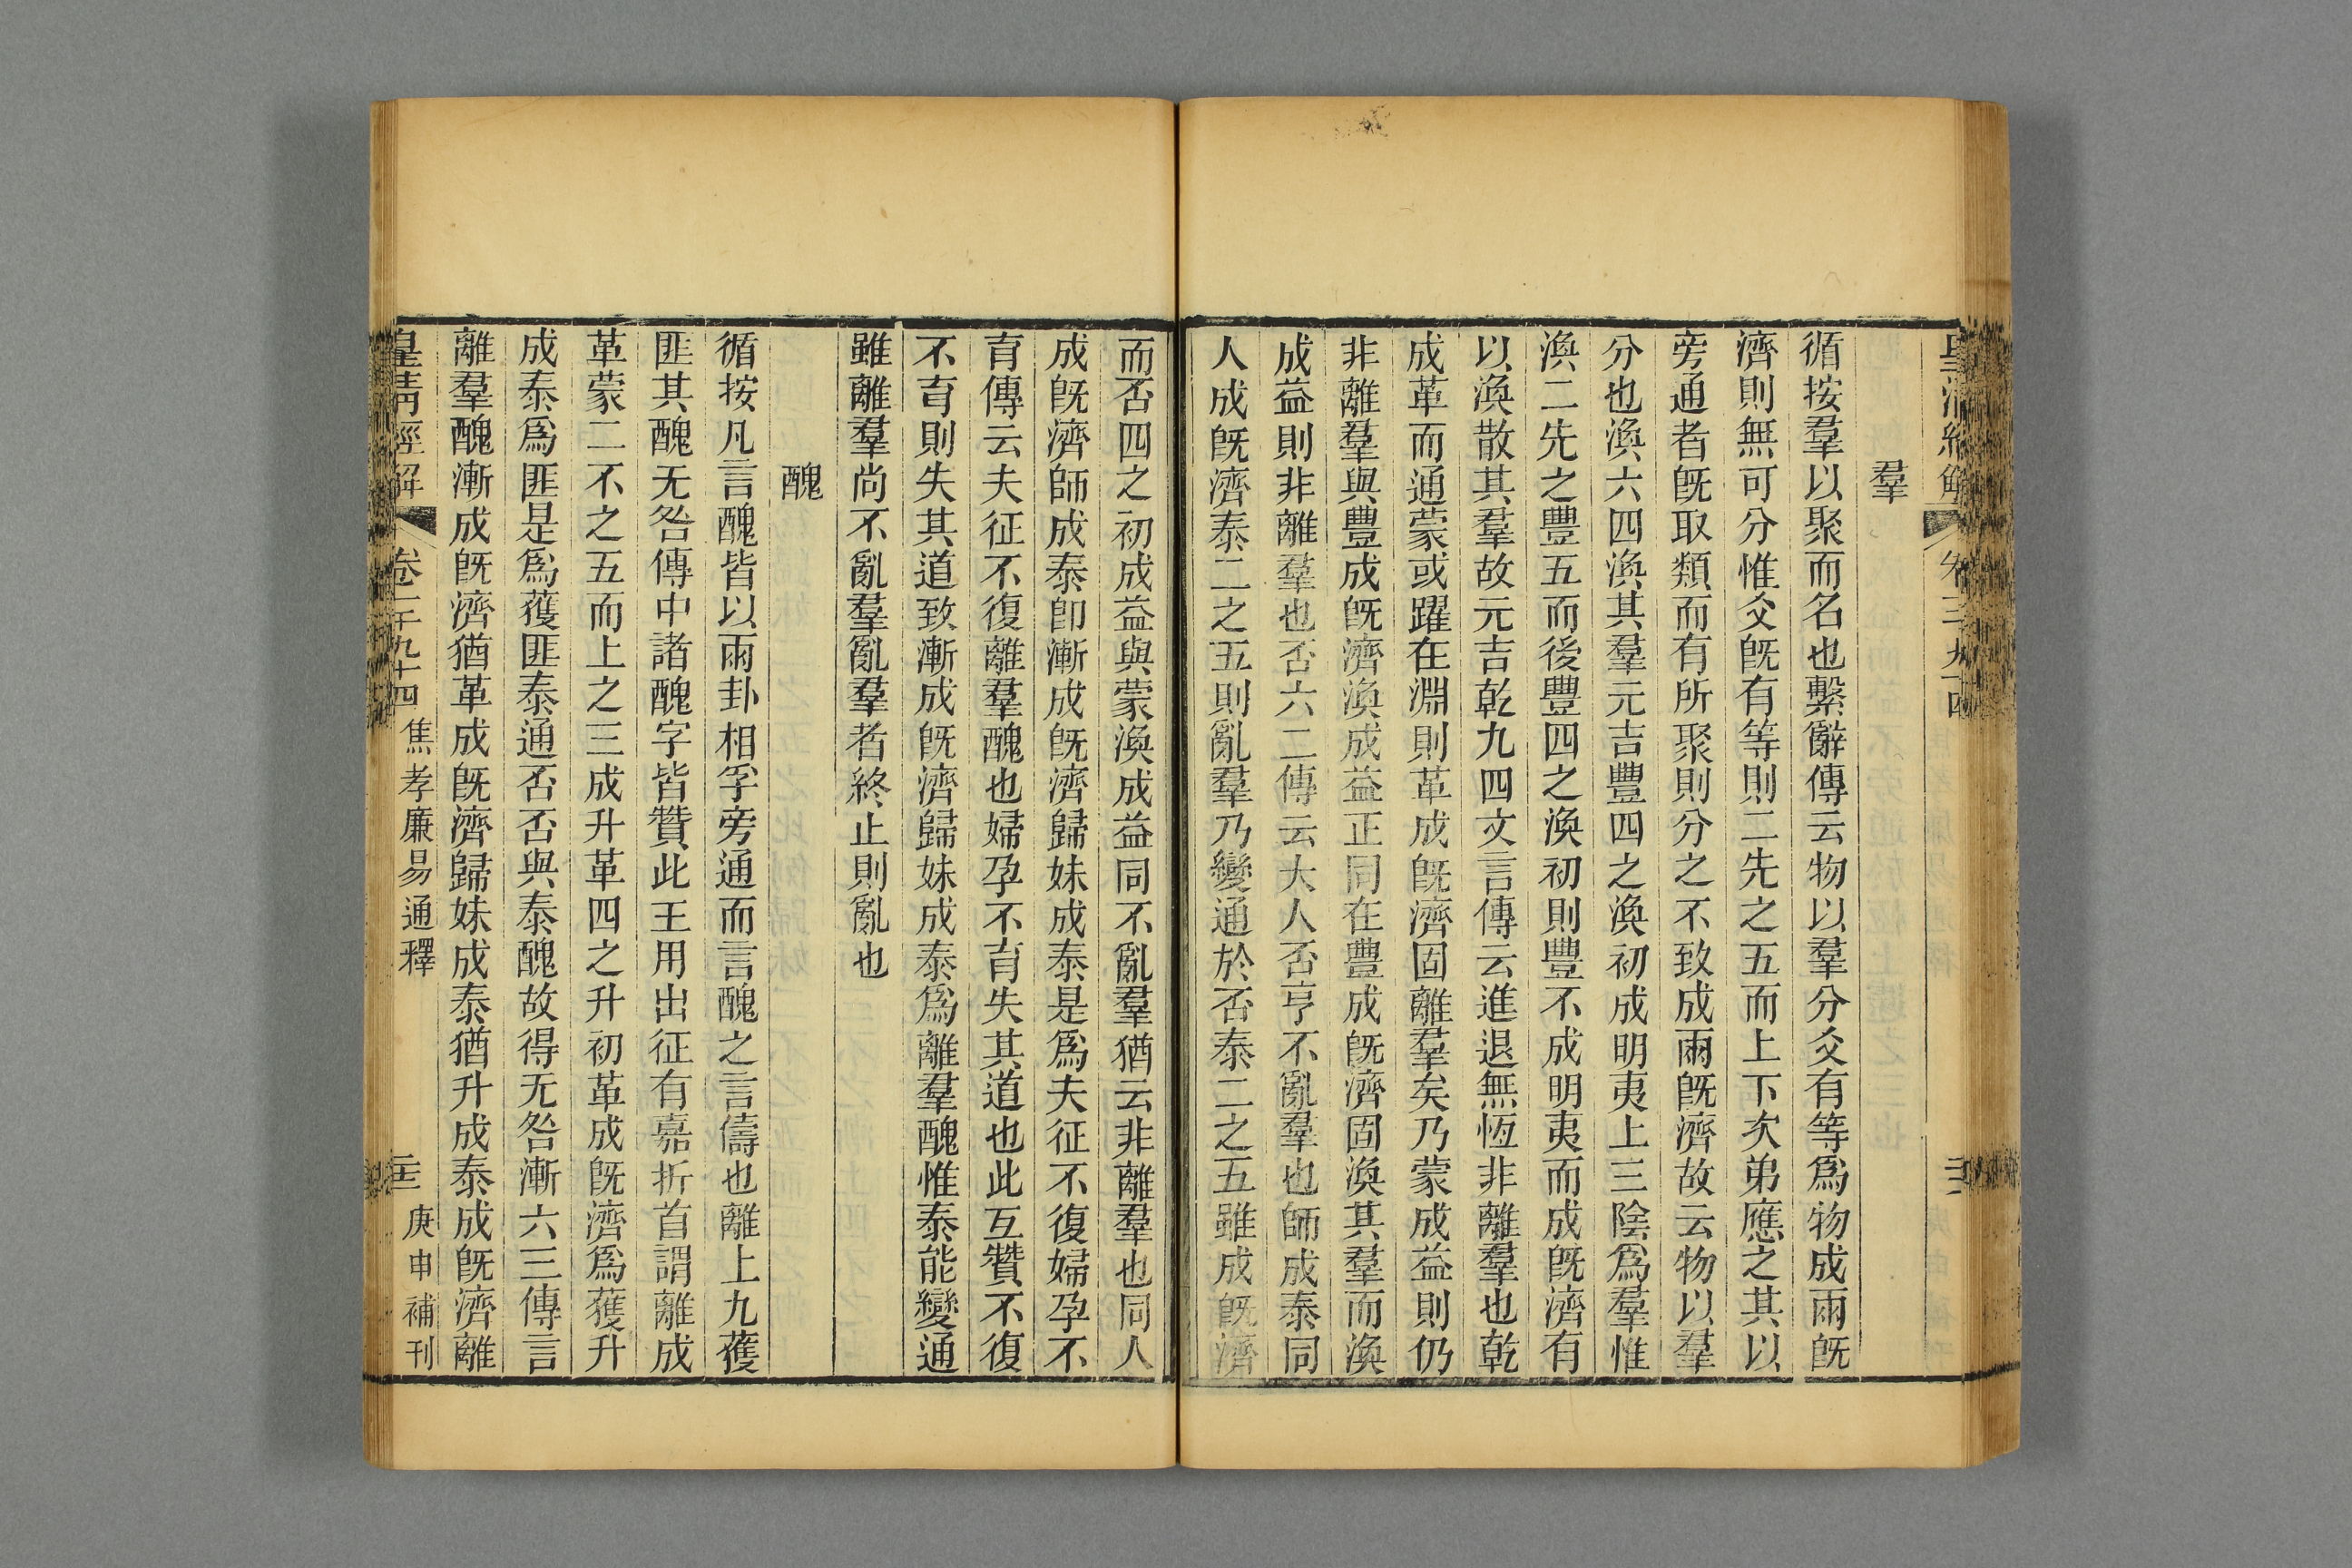 羣
循按羣以聚而名也繫辭傳云物以羣分爻有等爲物成兩旣
濟則無可分惟爻旣有等則二先之五而上下次弟應之其以
旁通者旣取類而有所聚則分之不致成兩旣濟故云物以羣
分也渙六四渙其羣元吉豐四之渙初成明夷上三陰爲羣惟
渙二先之豐五而後豐四之渙初則豐不成明夷而成旣濟有
以渙散其羣故元吉乾九四文言傳云進退無恆非離羣也乾
成革而通蒙或躍在淵則革成旣濟固離羣矣乃蒙成益則仍
非離羣與豐成旣濟渙成益正同在豐成旣濟固渙其羣而渙
成益則非離羣也否六二傳云大人否亨不亂羣也師成泰同
人成旣濟泰二之五則亂羣乃變通於否泰二之五雖成旣濟
而否四之初成益與蒙渙成益同不亂羣猶云非離羣也同人
成旣濟師成泰卽漸成旣濟歸妹成泰是爲夫征不復婦孕不
育傳云夫征不復離羣醜也婦孕不育失其道也此互贊不復
不育則失其道致漸成旣濟歸妹成泰爲離羣醜惟泰能變通
雖離羣尚不亂羣亂羣者終止則亂也
醜
循按凡言醜皆以兩卦相孚旁通而言醜之言儔也離上九獲
匪其醜无咎傳中諸醜字皆贊此王用出征有嘉折首謂離成
革蒙二不之五而上之三成升革四之升初革成旣濟爲獲升
成泰爲匪是爲獲匪泰通否否與泰醜故得无咎漸六三傳言
離羣醜漸成旣濟猶革成旣濟歸妹成泰猶升成泰成旣濟離
皇淸經解 卷一千九十四 焦孝廉易通釋 庚申補刊